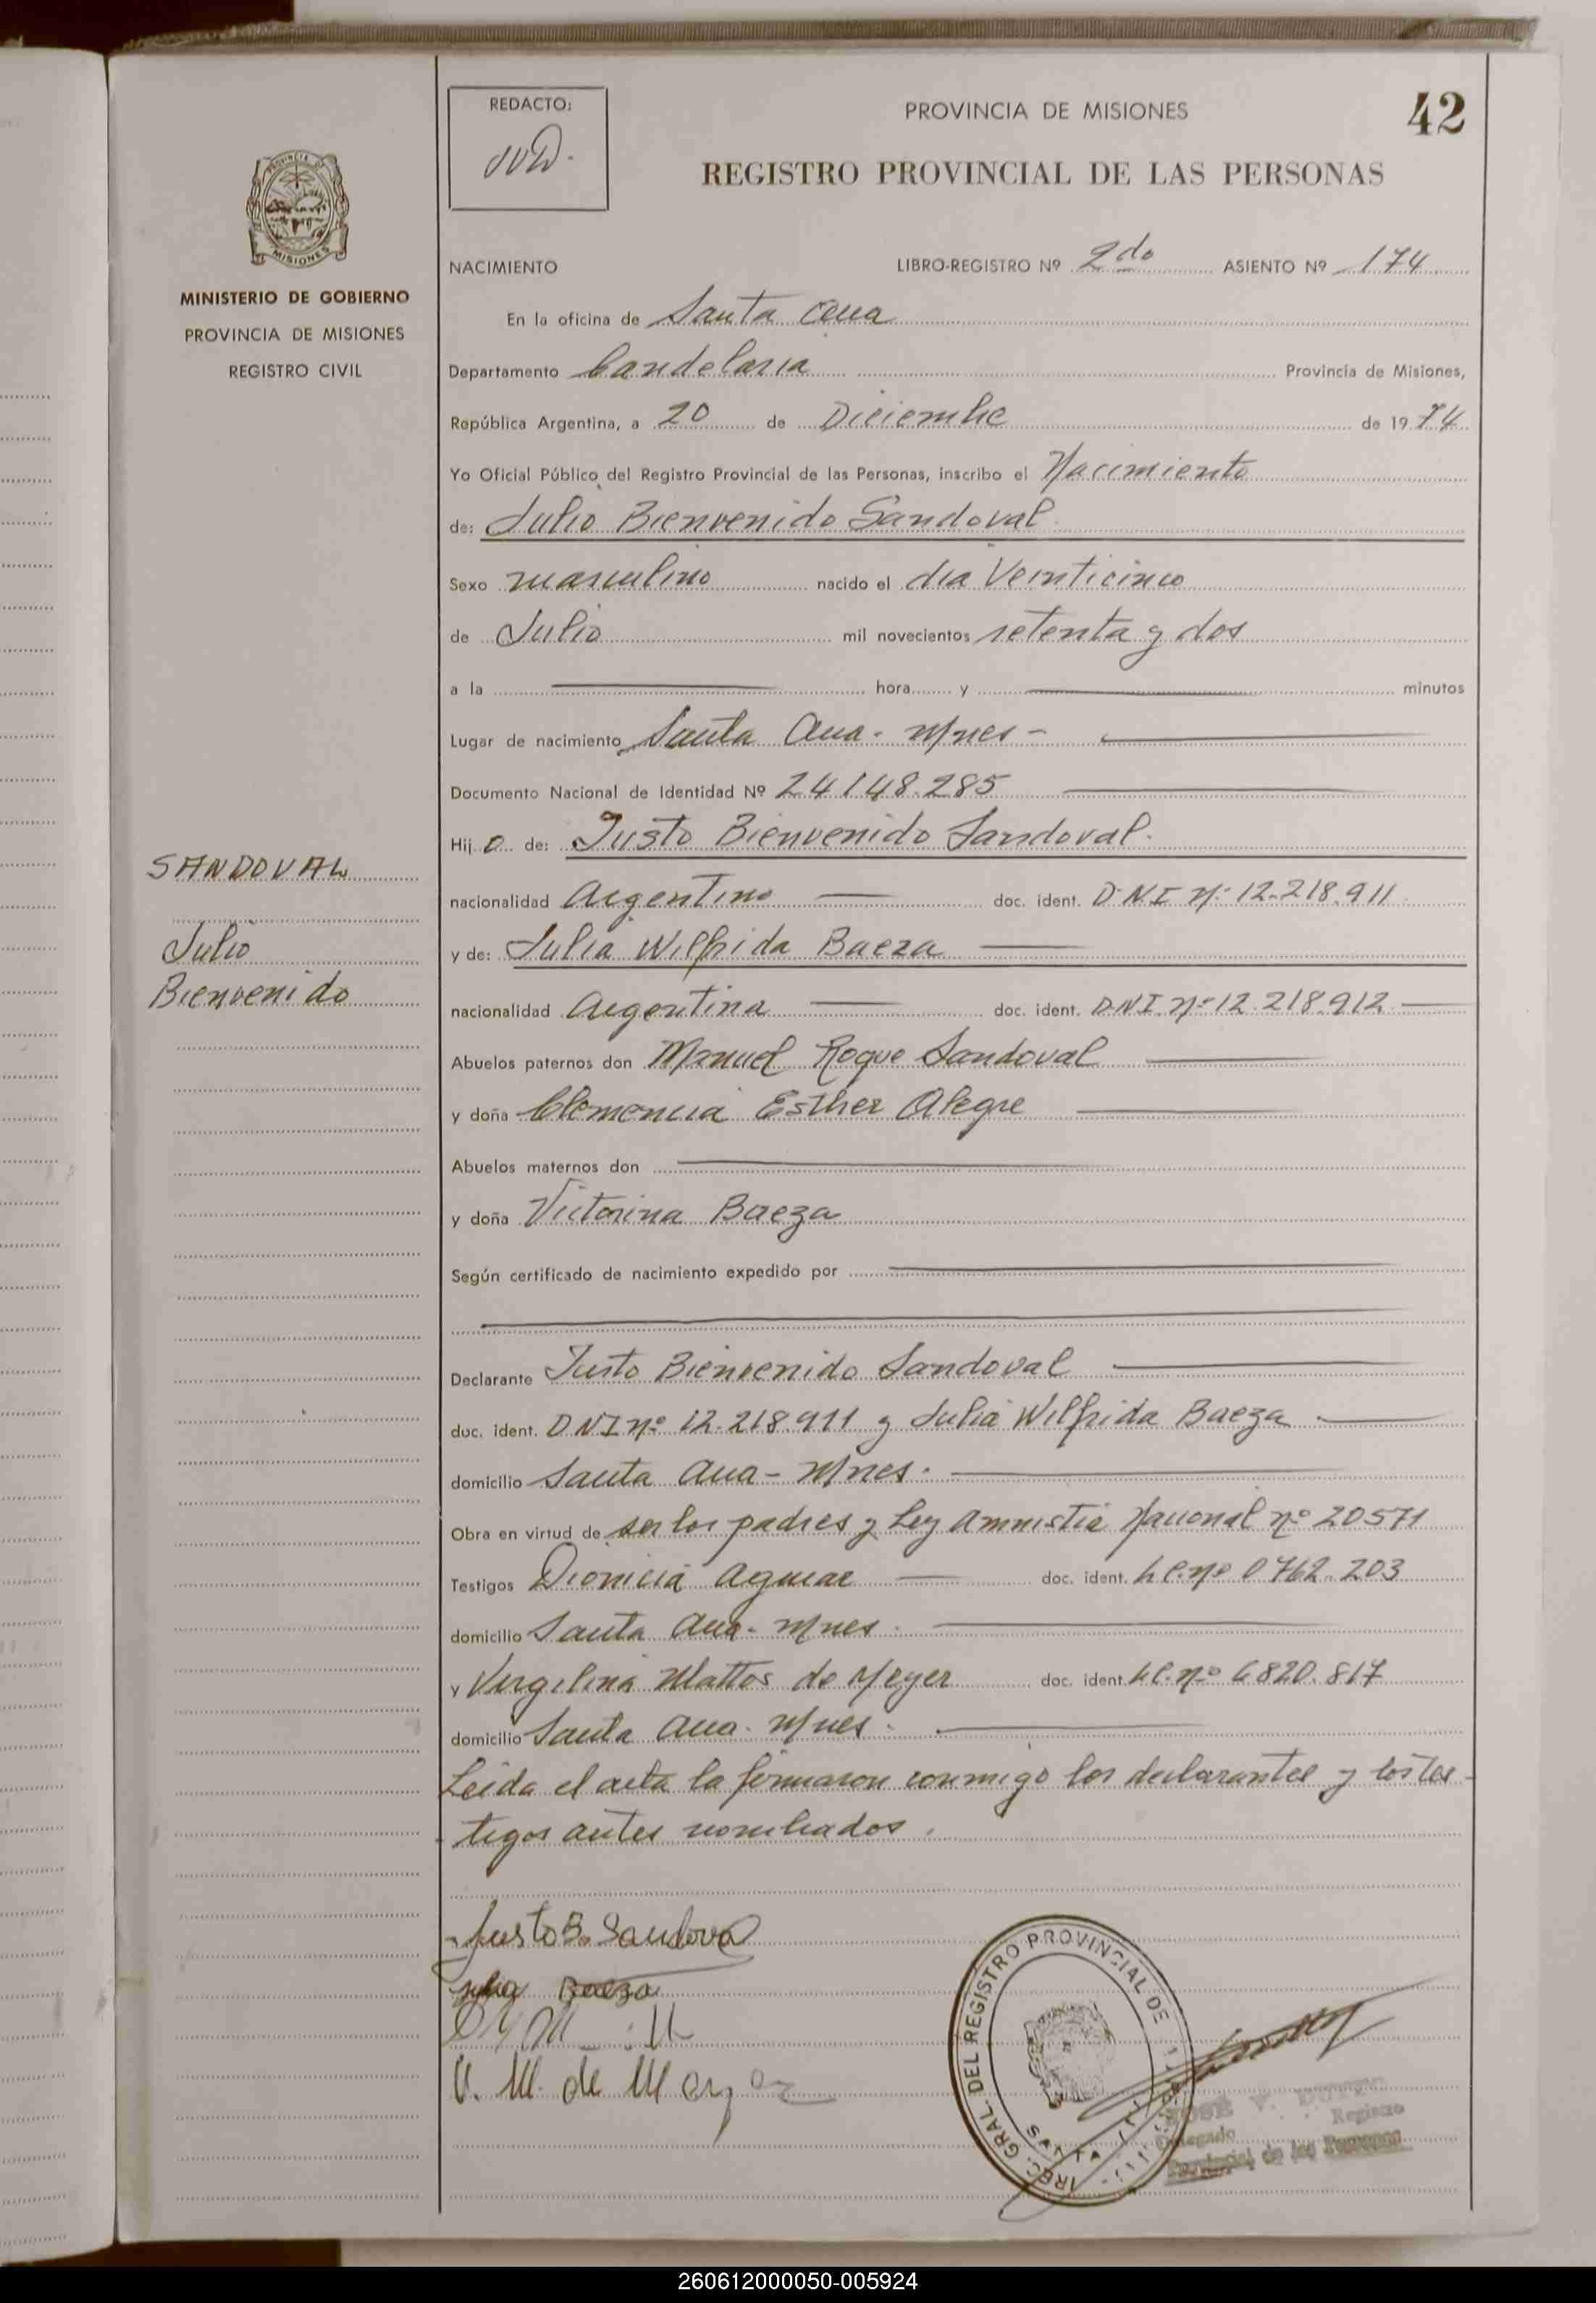 REDACTO:
PROVINCIA DE MISIONES
42
REGISTRO PROVINCIAL DE LAS PERSONAS
PROVINCIA DE
MISIONES
MINISTERIO DE GOBIERNO
PROVINCIA DE MISIONES
REGISTRO CIVIL
NACIMIENTO LIBRO-REGISTRO Nº 2do ASIENTO Nº 174
En la oficina de Santa Ana
Departamento Candelaria Provincia de Misiones,
República Argentina, a 20 de Diciembre de 1974
Yo Oficial Público del Registro Provincial de las Personas, inscribo el Nacimiento
de: Julio Bienvenido Sandoval
Sexo masculino nacido el dia Veinticinco
de Julio mil novecientos setenta y dos
a la hora y minutos
Lugar de nacimiento Santa Ana - Mnes -
Documento Nacional de Identidad Nº 24148.285
Hijo de: Justo Bienvenido Sandoval.
SANDOVAL
Julio
Bienvenido
nacionalidad Argentino doc. ident. D.N.I Nº 12.218.911
y de: Julia Wilfrida Baeza
nacionalidad Argentina doc. ident. D.N.I. nº 12.218.912
Abuelos paternos don Manuel Roque Sandoval
y doña Clemencia Esther Alegre
Abuelos maternos don
y doña Victorina Baeza
Según certificado de nacimiento expedido por
Declarante Justo Bienvenido Sandoval
doc. ident. DNI nº 12.218.911 y Julia Wilfrida Baeza
domicilio Santa Ana - Mnes.
Obra en virtud de ser los padres y Ley Amnistia Nacional nº 20571
Testigos Dionicia Aguiar doc. ident. L.C. nº 0762.203
domicilio Santa Ana - Mnes.
y Vergilina Mattos de Meyer doc. ident. L.C. nº 6820.817
domicilio Santa Ana. Mnes.
Leida el acta la firmaron conmigo los declarantes y los tes-
tigos antes nombrados.
Justo B. Sandoval
Julia Baeza
V. M. de Meyer
GRAL. DEL REGISTRO PROVINCIAL DE
JOSÉ V.
Delegado Registro
Provincial de las Personas
260612000050-005924